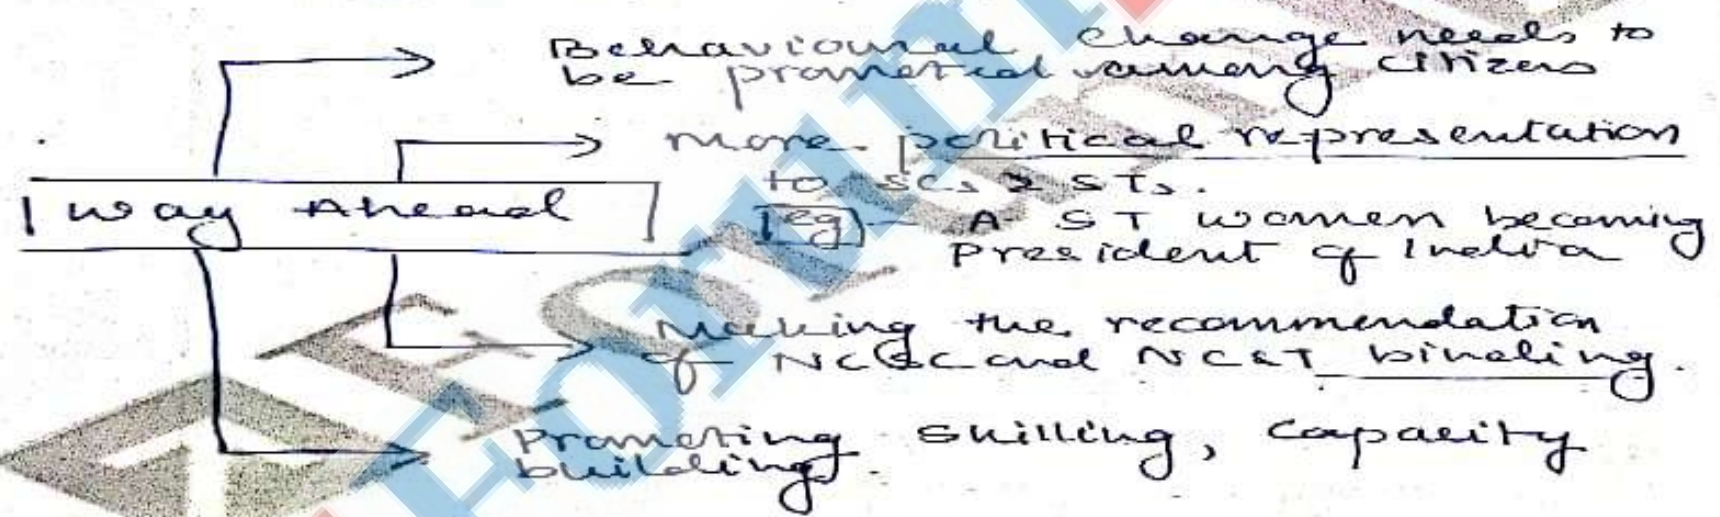 Behavioural change needs to
be promoted among citizens
More political representation
to SCs & STs.
Way Ahead
eg - A ST women becoming
President of India
Making the recommendation
of NCSC and NCST binding.
Promoting skilling, capacity
building.